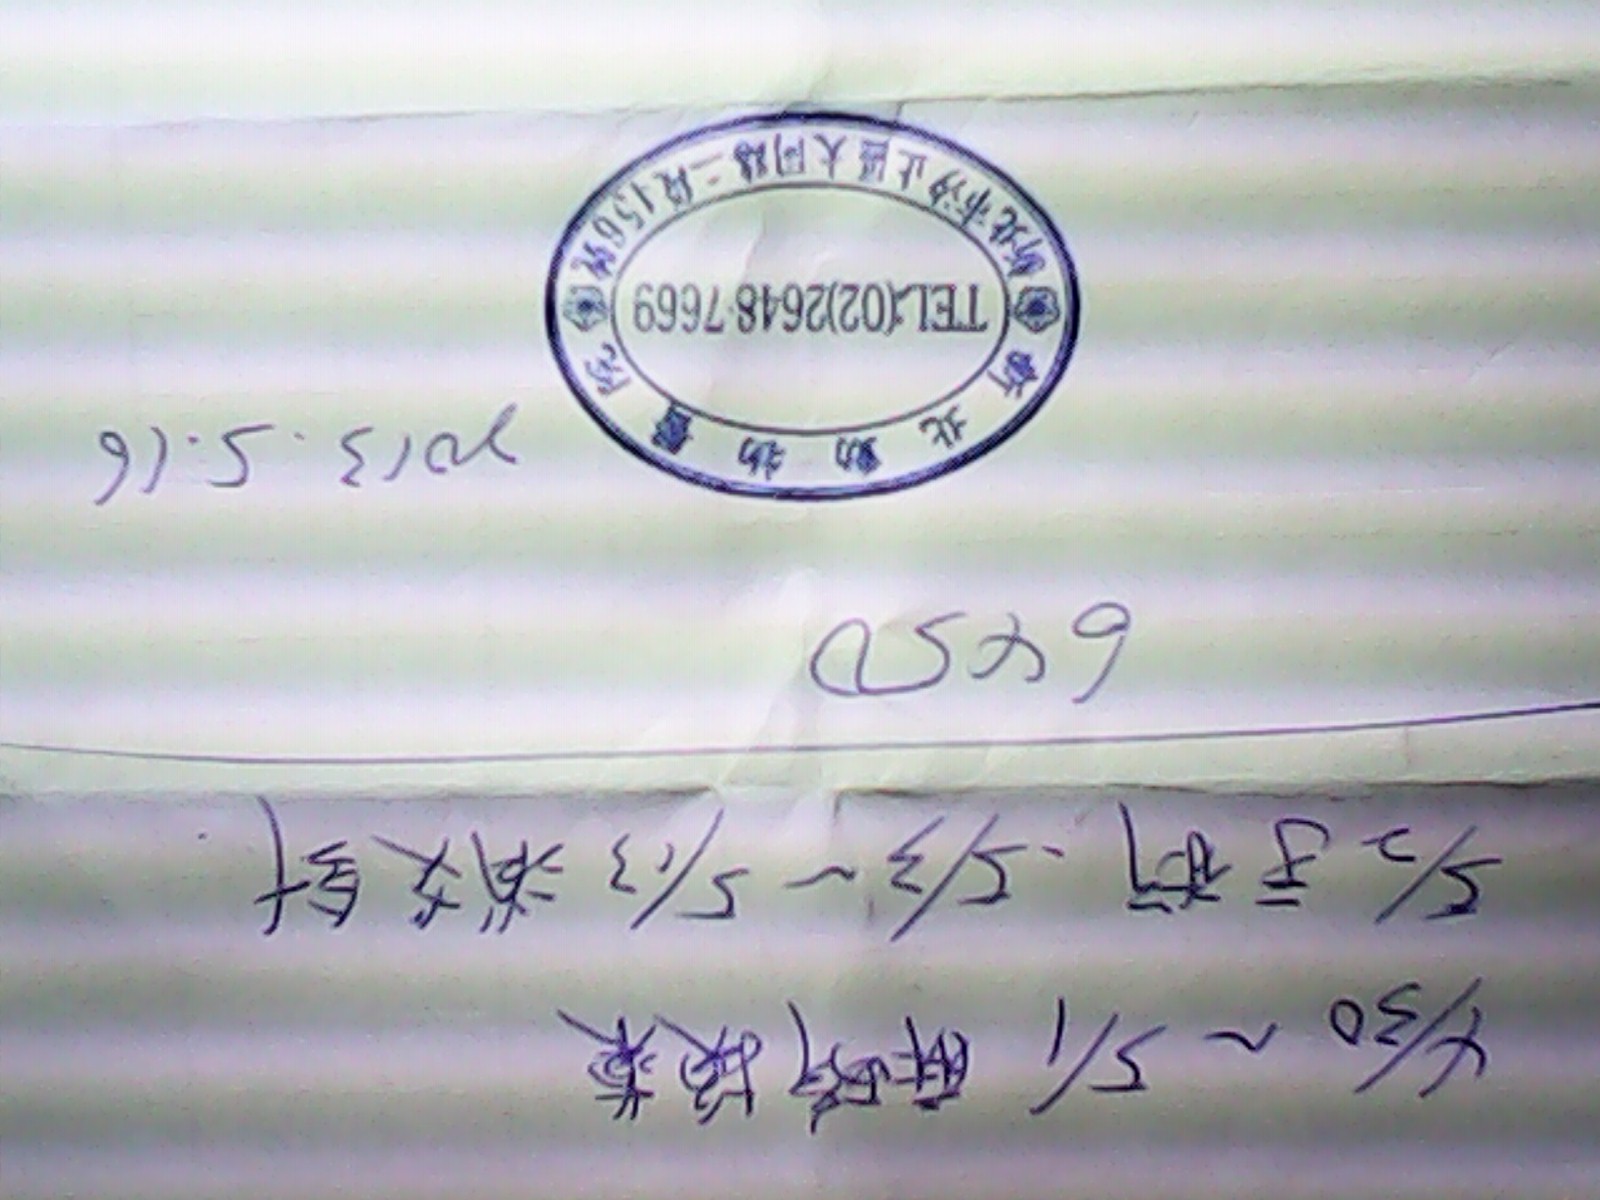 4/30 ~ 5/1 麻醉挨藥
5/2 手術. 5/3 ~ 5/13 消炎針.
6450
2013.5.16
新北動物醫院
TEL:(02)2648-7669
新北市汐止區大同路二段156號